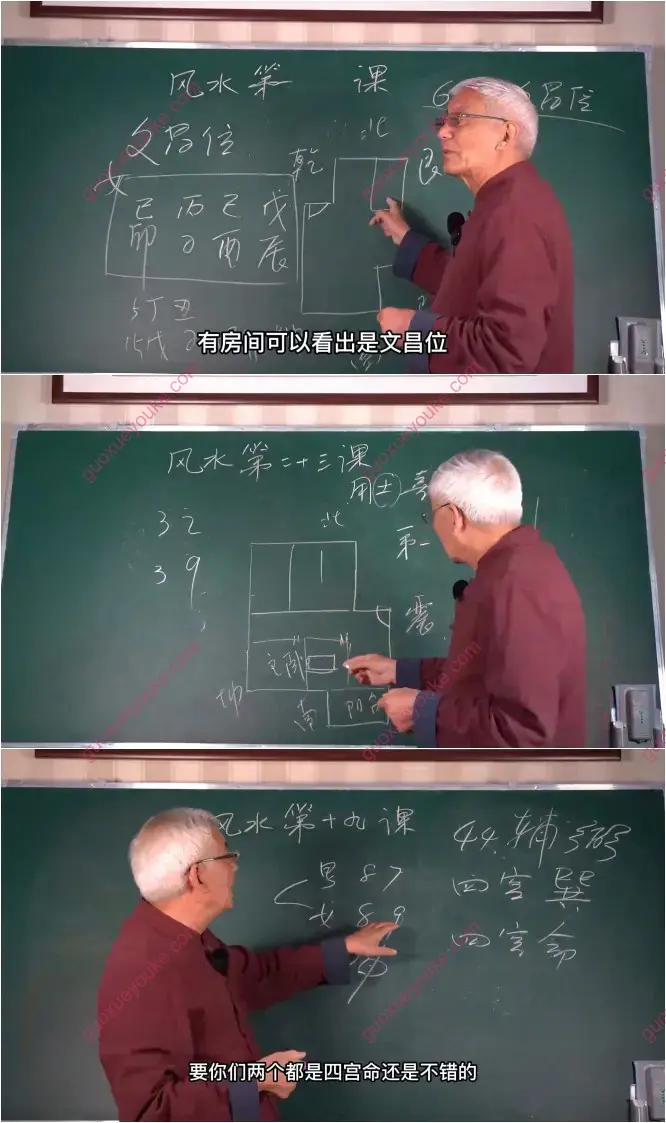 风水第 课
北
文昌位
昌位
乾
艮
女
己 丙 己 戊
卯 子 酉 辰
5丁丑
15戊
有房间可以看出是文昌位
风水第二十三课
用土 喜
北
第一
震
主卧
南
阳台
风水第十九课
44.辅
男 87
四宫 巽
女 89
四宫命
要你们两个都是四宫命还是不错的
guoxueyouke.com